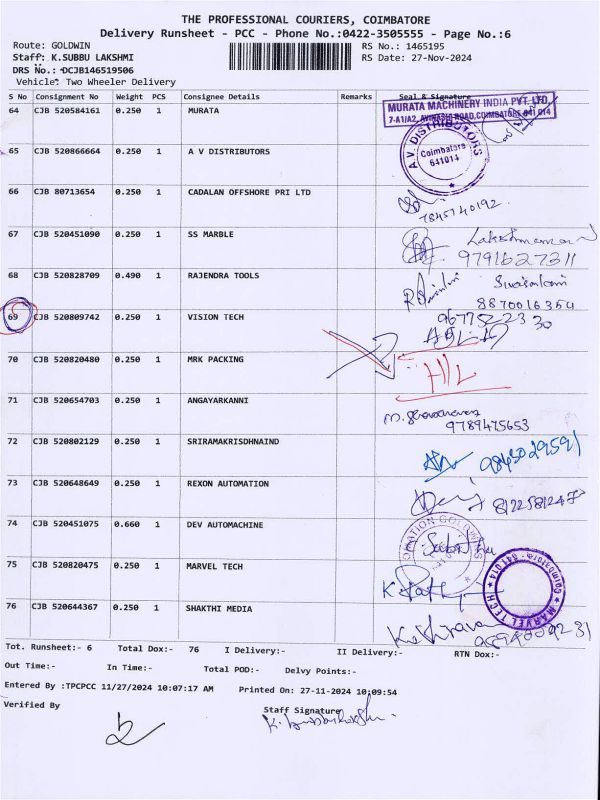 THE PROFESSIONAL COURIERS, COIMBATORE
Delivery Runsheet - PCC - Phone No.:0422-3505555 - Page No.:6
Route: GOLDWIN RS No.: 1465195
Staff: K.SUBBU LAKSHMI RS Date: 27-Nov-2024
DRS No.: DCJB146519506
Vehicle: Two Wheeler Delivery
S No Consignment No Weight PCS Consignee Details Remarks Seal & Signature
64 CJB 520584161 0.250 1 MURATA
MURATA MACHINERY INDIA PVT. LTD.
7-A1/A2, AVINASHI ROAD, COIMBATORE-641 014
65 CJB 520866664 0.250 1 A V DISTRIBUTORS
A.V. DISTRIBUTORS
Coimbatore
641014
66 CJB 80713654 0.250 1 CADALAN OFFSHORE PRI LTD
7845740192
67 CJB 520451090 0.250 1 SS MARBLE
Lakshmanan
9791627311
68 CJB 520828709 0.490 1 RAJENDRA TOOLS
8870016354
69 CJB 520809742 0.250 1 VISION TECH
9677522330
70 CJB 520820480 0.250 1 MRK PACKING
71 CJB 520654703 0.250 1 ANGAYARKANNI
9789475653
72 CJB 520802129 0.250 1 SRIRAMAKRISDHNAIND
9843029591
73 CJB 520648649 0.250 1 REXON AUTOMATION
8122581247
74 CJB 520451075 0.660 1 DEV AUTOMACHINE
75 CJB 520820475 0.250 1 MARVEL TECH
MARVEL TECH
Coimbatore - 641 014
76 CJB 520644367 0.250 1 SHAKTHI MEDIA
Tot. Runsheet:- 6 Total Dox:- 76 I Delivery:- II Delivery:- RTN Dox:-
Out Time:- In Time:- Total POD:- Delvy Points:-
Entered By :TPCPCC 11/27/2024 10:07:17 AM Printed On: 27-11-2024 10:09:54
Verified By Staff Signature